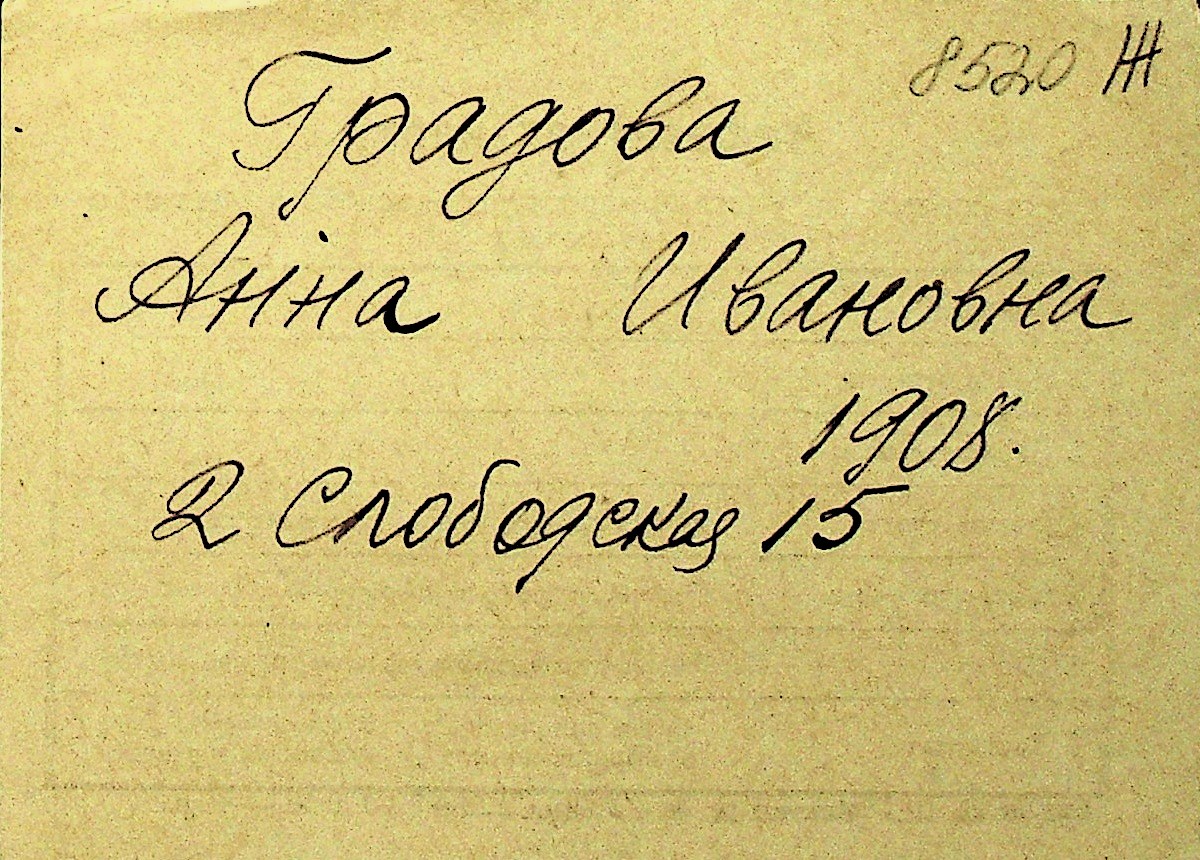 8520 Ж
Градова
Анна Ивановна
1908.
2 Слободская 15